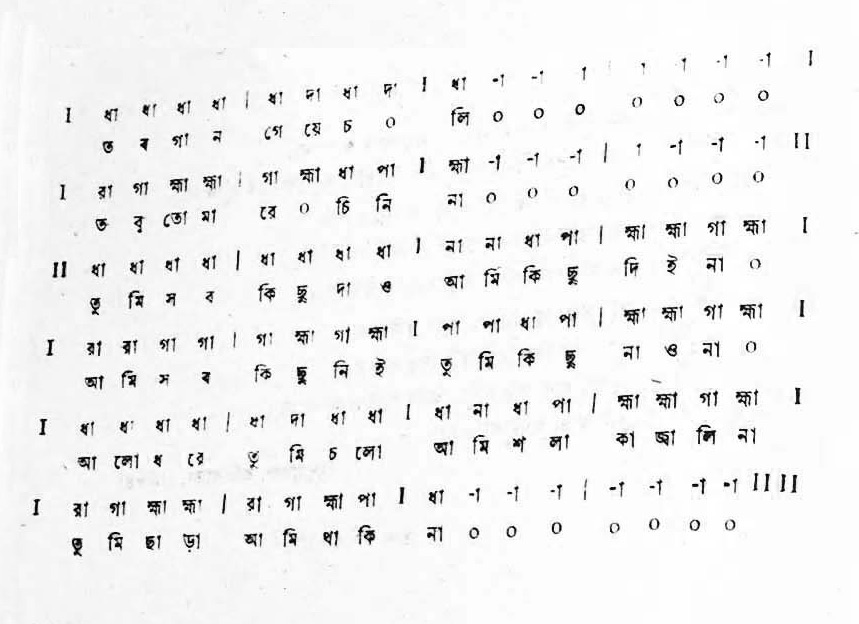 I ধা ধা ধা ধা | ধা দা ধা দা I ধা -া -া া | া া -া -া I
ত ব গা ন গে য়ে চ ০ লি ০ ০ ০ ০ ০ ০ ০
I রা গা হ্মা হ্মা | গা হ্মা ধা পা I হ্মা -া -া -া | া -া -া -া II
ত বু তো মা রে ০ চি নি না ০ ০ ০ ০ ০ ০ ০
II ধা ধা ধা ধা | ধা ধা ধা ধা I না না ধা পা | হ্মা হ্মা গা হ্মা I
তু মি স ব কি ছু দা ও আ মি কি ছু দি ই না ০
I রা রা গা গা | গা হ্মা গা হ্মা I পা পা ধা পা | হ্মা হ্মা গা হ্মা I
আ মি স ব কি ছু নি ই তু মি কি ছু না ও না ০
I ধা ধা ধা ধা | ধা দা ধা ধা I ধা না ধা পা | হ্মা হ্মা গা হ্মা I
আ লো ধ রে তু মি চ লো আ মি শ লা কা জ্বা লি না
I রা গা হ্মা হ্মা | রা গা হ্মা পা I ধা -া -া -া | -া -া -া -া II II
তু মি ছা ড়া আ মি থা কি না ০ ০ ০ ০ ০ ০ ০